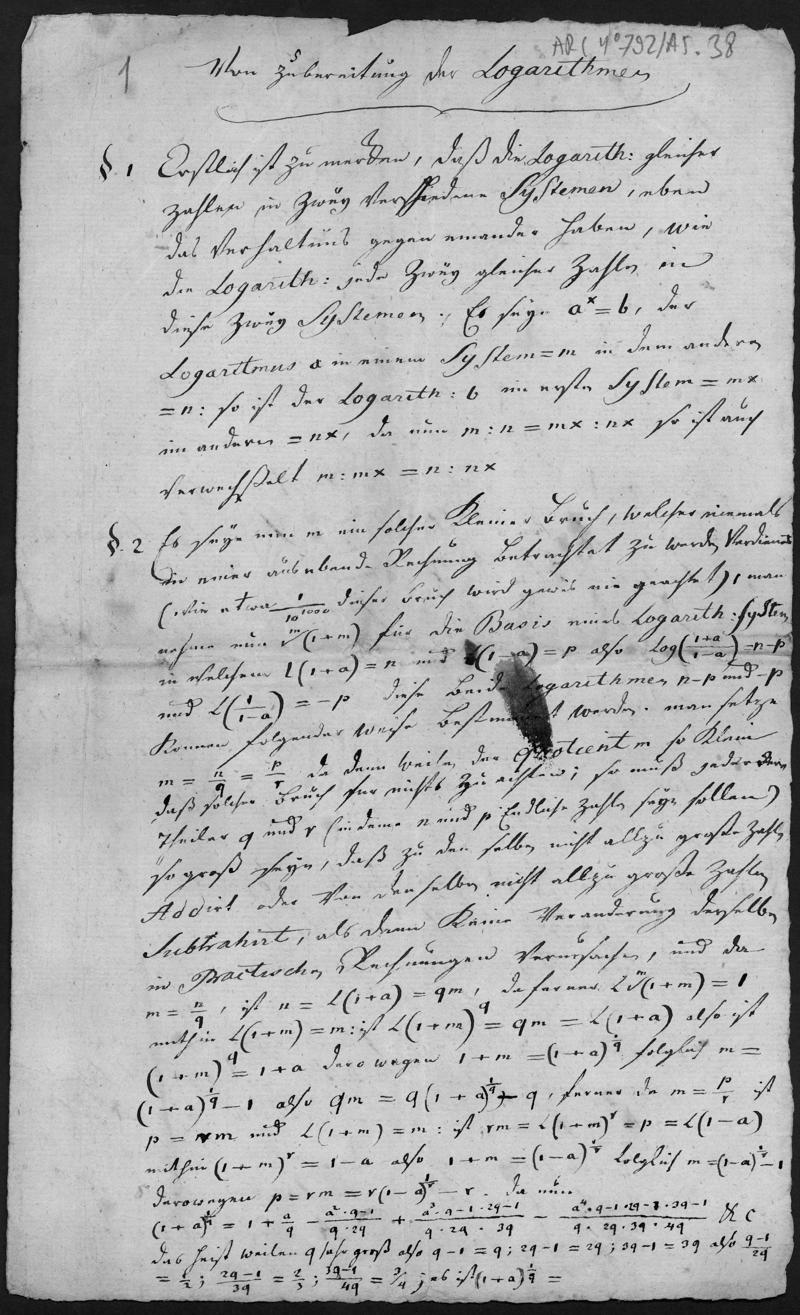 ARC 4° 792/A5. 38
1
Von Zubereitung der Logarithmen
§. 1 Erstlich ist zu merken, daß die Logarith: gleicher
Zahlen in Zweÿ Verschiedene Systemen, eben
das Verhaltnuß gegen einander haben, wie
die Logarith: jede Zweÿ gleicher Zahlen in
diese Zweÿ Systemen. Es seÿe a^x = b, der
Logaritmus a in einem System = m in dem anderen
= n: so ist der Logarith: b im ersten System = mx
im anderen = nx, da nun m : n = mx : nx so ist auch
verwechselt m : mx = n : nx
§. 2 Es seÿe nun m ein solcher Kleiner Bruch, welcher niemals
in einer ausübende Rechnung betrachtet zu werden Verdienet
(wie etwa 1/10^1000 dieser Bruch wird gewis nie geachtet), man
nehme nun √^m(1+m) für die Basis eines Logarith: System
in welchem L(1+a) = n und L(1-a) = p also Log((1+a)/(1-a)) = n-p
und L(1/(1-a)) = -p diese beide Logarithmen n-p und -p
Konnen folgender weise bestimmt werden. man setze
m = n/q = p/r da dann weilen der Quotient m so Klein
daß solcher Bruch für nichts zu achten; so muß jeder deren
Theiler q und r (indeme n und p Endliche Zahlen seÿn sollen)
so groß seÿn, daß zu denselben nicht allzu große Zahlen
Addirt oder von denselben nicht allzu große Zahlen
Subtrahirt, als dann Keine Veranderung derselben
in Practischen Rechnungen verursachen, und da
m = n/q, ist n = L(1+a) = qm, da ferner L√^m(1+m) = 1
mithin L(1+m) = m: ist L(1+m)^q = qm = L(1+a) also ist
(1+m)^q = 1+a derowegen 1+m = (1+a)^1/q folglich m =
(1+a)^1/q - 1 also qm = q(1+a)^1/q - q, ferner da m = p/r ist
p = rm und L(1+m) = m: ist rm = L(1+m)^r = p = L(1-a)
mithin (1+m)^r = 1-a also 1+m = (1-a)^1/r folglich m = (1-a)^1/r - 1
derowegen p = rm = r(1-a)^1/r - r. da nun
(1+a)^1/q = 1 + a/q - (a²·q-1)/(q·2q) + (a³·q-1·2q-1)/(q·2q·3q) - (a⁴·q-1·2q-1·3q-1)/(q·2q·3q·4q) &c
das heist weilen q sehr groß also q-1 = q; 2q-1 = 2q; 3q-1 = 3q also (q-1)/2q
= 1/2; (2q-1)/3q = 2/3; (3q-1)/4q = 3/4; es ist (1+a)^1/q =